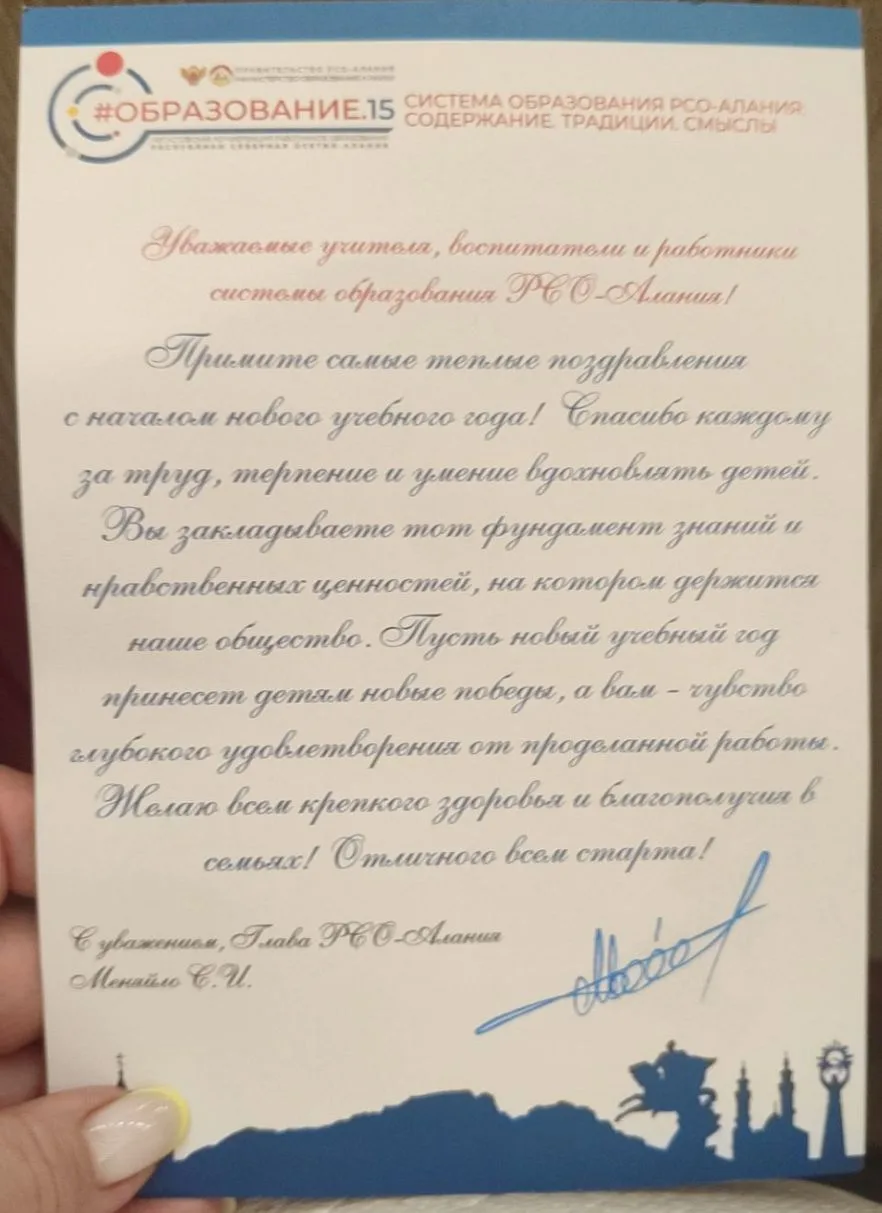 ПРАВИТЕЛЬСТВО РСО-АЛАНИЯ
#ОБРАЗОВАНИЕ.15
РЕСПУБЛИКИ СЕВЕРНАЯ ОСЕТИЯ-АЛАНИЯ
СИСТЕМА ОБРАЗОВАНИЯ РСО-АЛАНИЯ:
СОДЕРЖАНИЕ. ТРАДИЦИИ. СМЫСЛЫ
Уважаемые учителя, воспитатели и работники
системы образования РСО-Алания!
Примите самые теплые поздравления
с началом нового учебного года! Спасибо каждому
за труд, терпение и умение вдохновлять детей.
Вы закладываете тот фундамент знаний и
нравственных ценностей, на котором держится
наше общество. Пусть новый учебный год
принесет детям новые победы, а вам - чувство
глубокого удовлетворения от проделанной работы.
Желаю всем крепкого здоровья и благополучия в
семьях! Отличного всем старта!
С уважением, Глава РСО-Алания
Меняйло С.И.